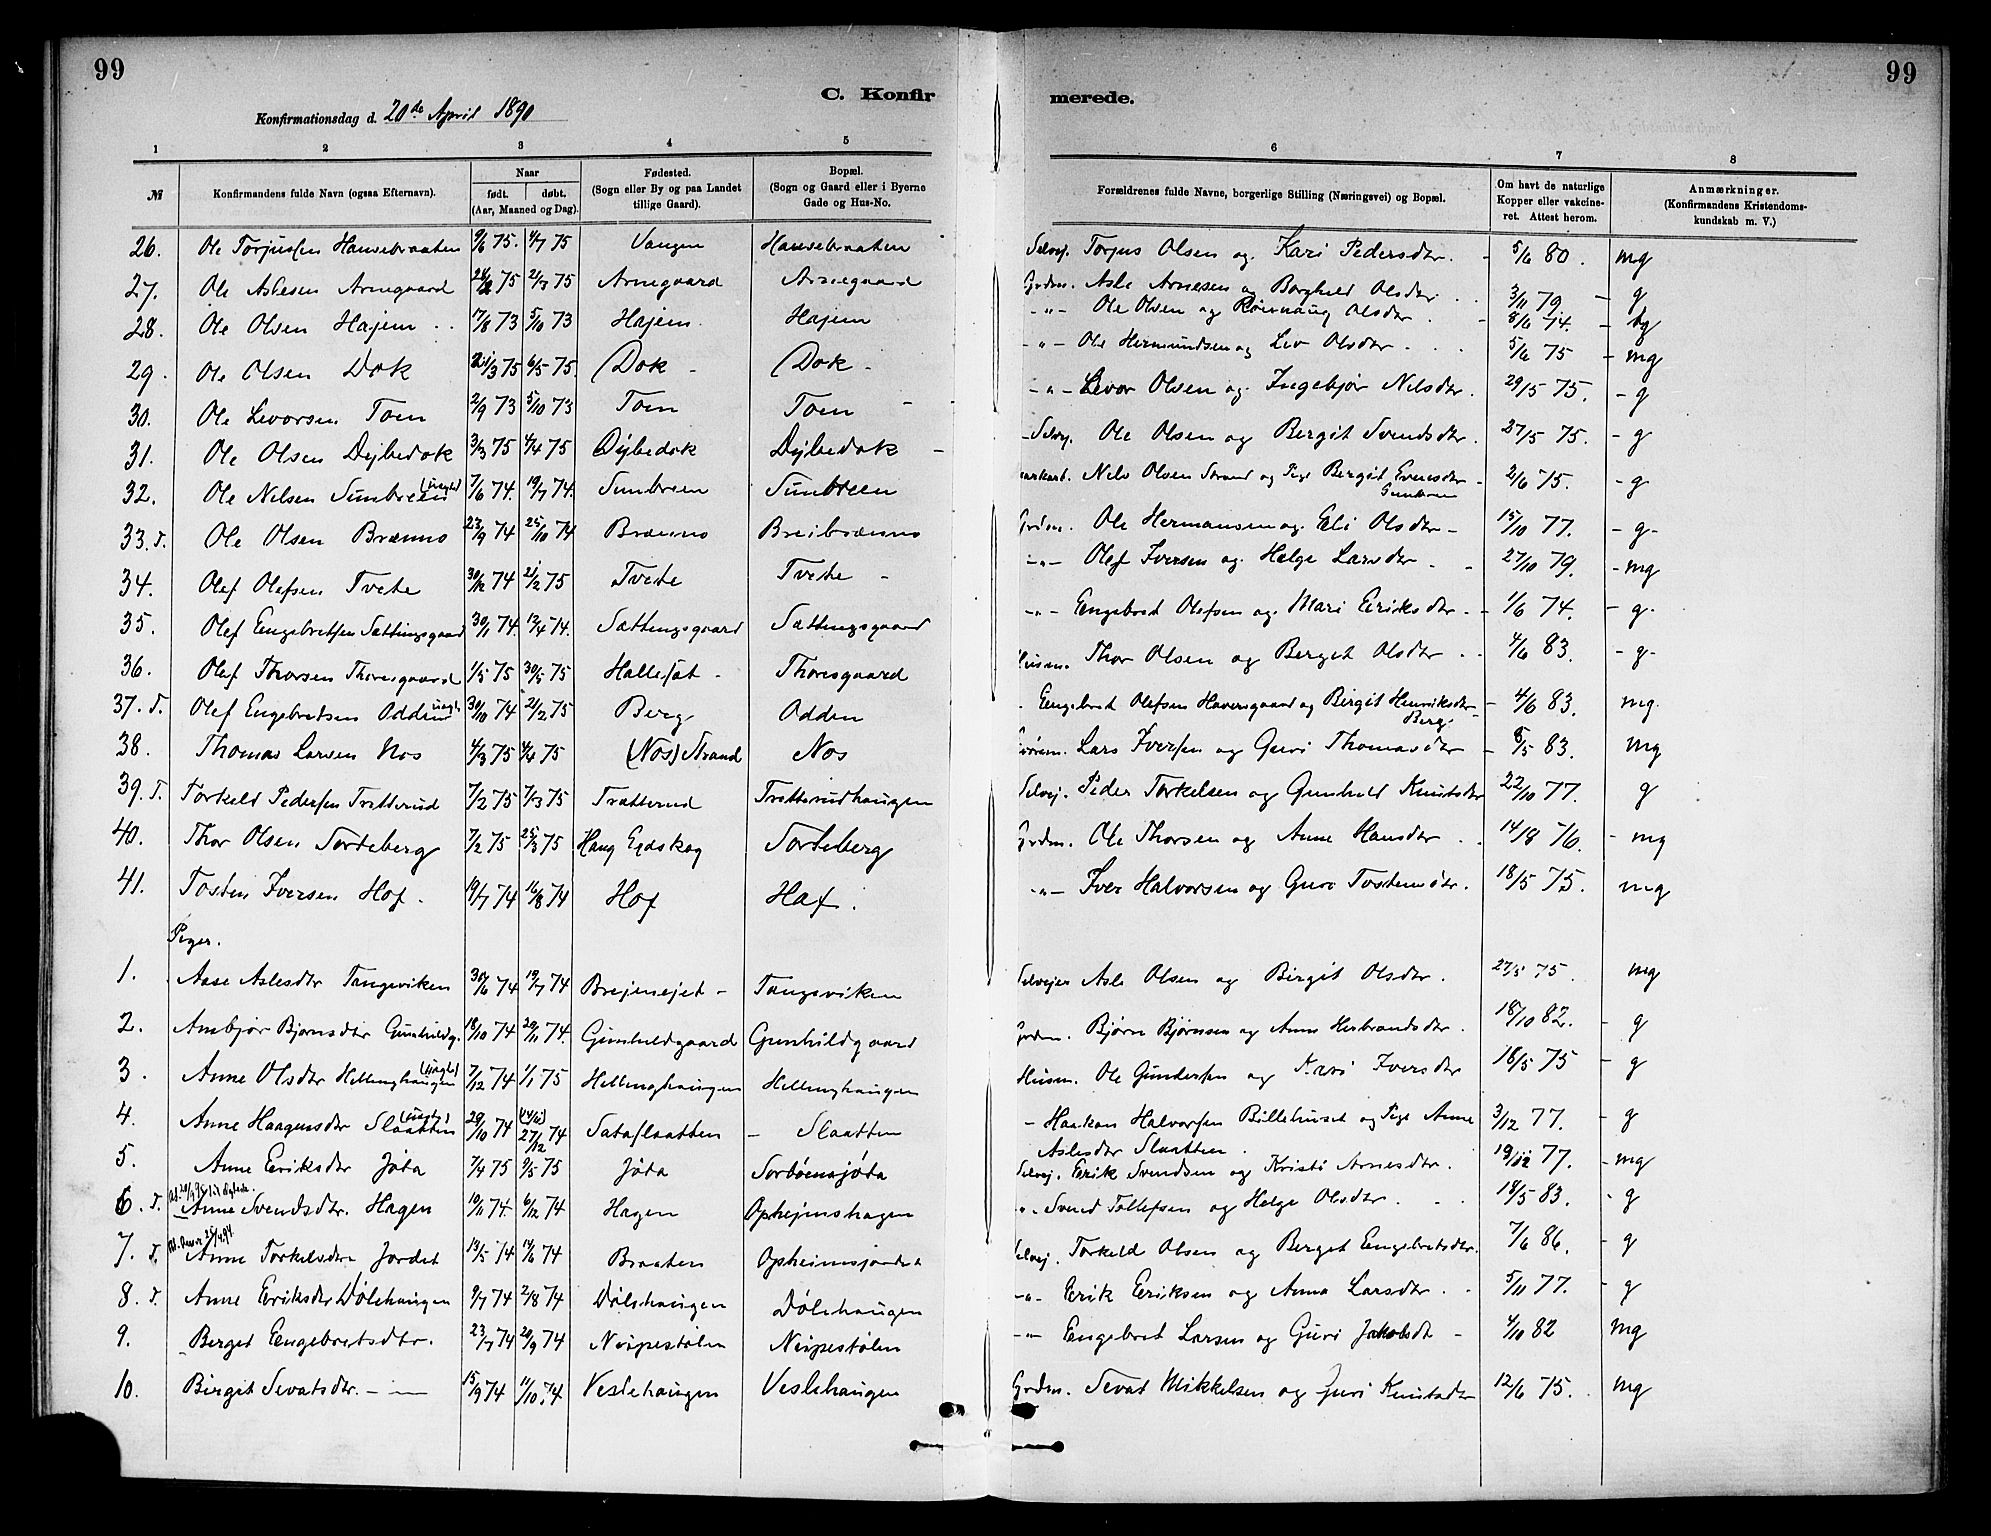 99
99
C. Konfir
merede.
Konfirmationsdag d. 20de April 1890
1 2 3 4 5 6 7 8
№ Konfirmandens fulde Navn (ogsaa Efternavn). Naar født. døbt. (Aar, Maaned og Dag). Fødested. (Sogn eller By og paa Landet tillige Gaard). Bopæl. (Sogn og Gaard eller i Byerne Gade og Hus-No. Forældrenes fulde Navne, borgerlige Stilling (Næringsvei) og Bopæl. Om havt de naturlige Kopper eller vakcineret. Attest herom. Anmærkninger. (Konfirmandens Kristendomskundskab m. V.)
26. Ole Torjussen Hansebraaten 9/6 75. 4/7 75 Vangen Hansebraaten Selvej. Torjus Olsen og Kari Pedersdtr. - 5/6 80. mg
27. Ole Aslesen Arnegaard 75 21/3 75 Arnegaard Arnegaard Grdm. Asle Arnesen og Borghild Olsdtr. 3/11 79 - g
28. Ole Olsen Hajem 17/8 73 5/10 73 Hajem Hajem - " - Ole Olsen og Rønnaug Olsdtr. - 8/6 74. - tg
29. Ole Olsen Dok 21/3 75 6/5 75. Dok - Dok - - " - Ole Hermundsen og Liv Olsdtr. 5/6 75 - mg
30. Ole Levorsen Toen 2/9 73 5/10 73 Toen Toen - - " - Levor Olsen og Ingebjør Nilsdtr. 29/5 75. - g
31. Ole Olsen Dybedok 3/3 75 4/4 75 Dybedok Dybedok - Selvej. Ole Olsen og Bergit Svendsdtr. 27/5 75. - g
32. Ole Nilsen Sunbreen (uægte) 7/6 74. 19/7 74. Sunbreen Sunbreen Nils Olsen Strand og Pige Bergit Eversdtr Sunbreen - 2/6 75. - g
33. T. Ole Olsen Brænno 23/9 74 25/10 74 Brænno Breibrænno Grdm. Ole Hermansen og Eli Olsdtr - 15/10 77. - g -
34. Olef Olefsen Tvete 30/12 74 21/2 75 Tvete Tvete - - " - Olef Iversen og Helge Larsdtr - 27/10 79. - mg
35. Olef Engebretsen Sættingsgaard 30/1 74. 12/4 74. Sættingsgaard Sættingsgaard - " - Engebret Olefsen og Mari Eriksdtr. - 1/6 74. - g.
36. Olef Thorsen Thoresgaard 1/5 75 30/5 75 Hallesat - Thoresgaard Husm. Thor Olsen og Berget Olsdtr - 4/6 83. - g -
37. T. Olef Engebretsen Odden uægt. 30/10 74 21/2 75 Berg Odden Engebret Olefsen Haversgaard og Birgit Henriksdtr Berg. - 4/6 83. mg.
38. Thomas Larsen Nos 4/3 75 4/4 75 (Nos) Strand Nos Lars Iversen og Guri Thomasdtr - 8/5 83. mg
39. T. Torkeld Pedersen Trætterud 7/2 75 7/3 75 Trætterud Trætterudhaugen Selvej. Peder Torkelsen og Gunhild Knutsdtr 22/10 77. g
40. Thor Olsen Sorteberg 7/2 75 25/3 75 Haug Eggskog Sorteberg Grdm. Ole Thorsen og Anne Hansdtr. 14/8 76. - mg
41. Tosten Iversen Hof. 19/7 74 16/8 74 Hof Hof. - " - Iver Halvorsen og Guri Tostensdtr. 18/5 75. mg
Piger.
1. Aase Aslesdtr Tangeviken 30/6 74 19/7 74 Brejenejet - Tangsviken Selvejer Asle Olsen og Birgit Olsdtr. 27/5 75. mg
2. Ambjør Bjørnsdtr Gunhildg. 18/10 74 20/11 74. Gunhildgaard Gunhildgaard Grdm. Bjørn Bjørnsen og Anne Herbrandsdtr. 18/10 82. - g
3. Anne Olsdtr Hellinghaugen (uægte) 7/12 74 1/1 75 Hellinghaugen Hellinghaugen Husm. Ole Gundersen og Kari Iversdtr 18/5 75 - g
4. Anne Haagensdtr Slaatten (uægte) 28/10 74 27/12 74 Sataslaatten - Slaatten - Haakon Halvorsen Billehuset og Pige Anne Aslesdtr Slaatten. 3/12 77. - g
5. Anne Eriksdtr Jota 7/4 75 9/5 75 Jota Sorboensjota Selvej. Erik Svendsen og Kristi Arnesdtr. 19/12 77. - mg
6. T. Anne Svendsdtr. Hagen 10/11 74. 6/12 74 Hagen Ophejmshagen Svend Tollefsen og Helge Olsdtr. 18/5 83. - g
7. T. Anne Torkelsdtr Jordet 13/5 74 14/6 74 Braaten Opheimsjordet Selvej. Torkeld Olsen og Berget Engebretsdtr. 7/6 86. - g
8. T. Anne Eriksdtr Dølehaugen 9/7 74 2/8 74 Dølehaugen Dølehaugen - " - Erik Eriksen og Anna Larsdtr. 5/11 77. - g
9. Berget Engebretsdtr. 23/7 74 20/9 74 Neipestølen Neipestølen - " Engebret Larsen og Guri Jakobsdt - 4/10 82 mg
10. Birgit Sevatsdtr. - " - 15/9 74 11/10 74 Veslehaugen Veslehaugen Grdm. Sevat Mikkelsen og Guri Knutsdtr 12/6 75. mg